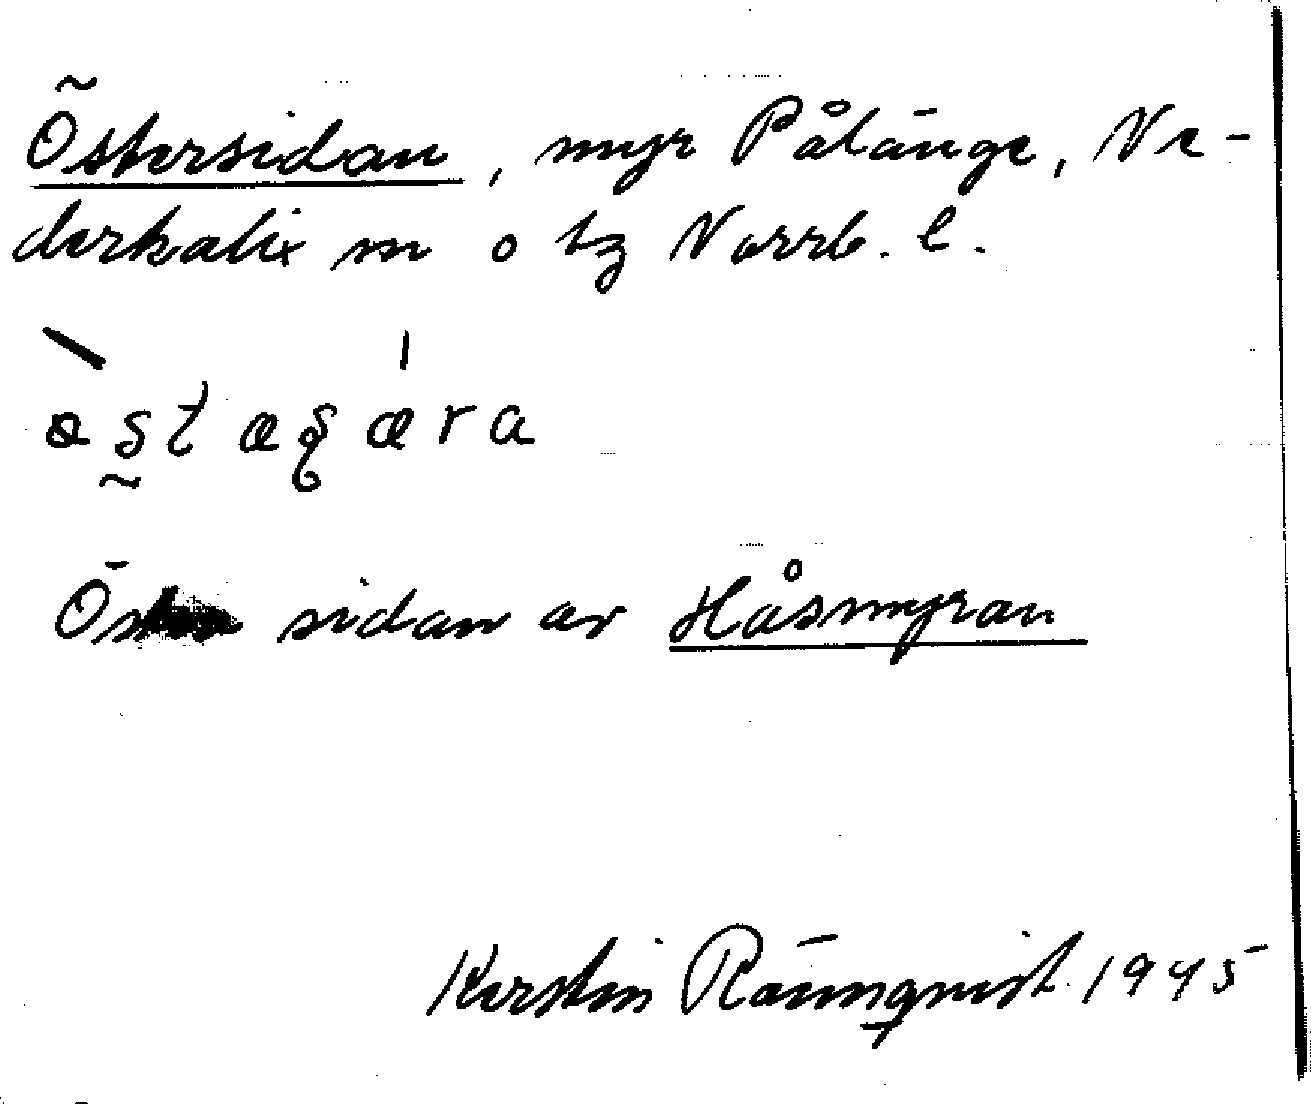 Östersidan, myr Pålänge, Ne-
derkalix sn o tg Norrb. l.
sidan av Håsmyran
Kerstin Rännqvist 1945